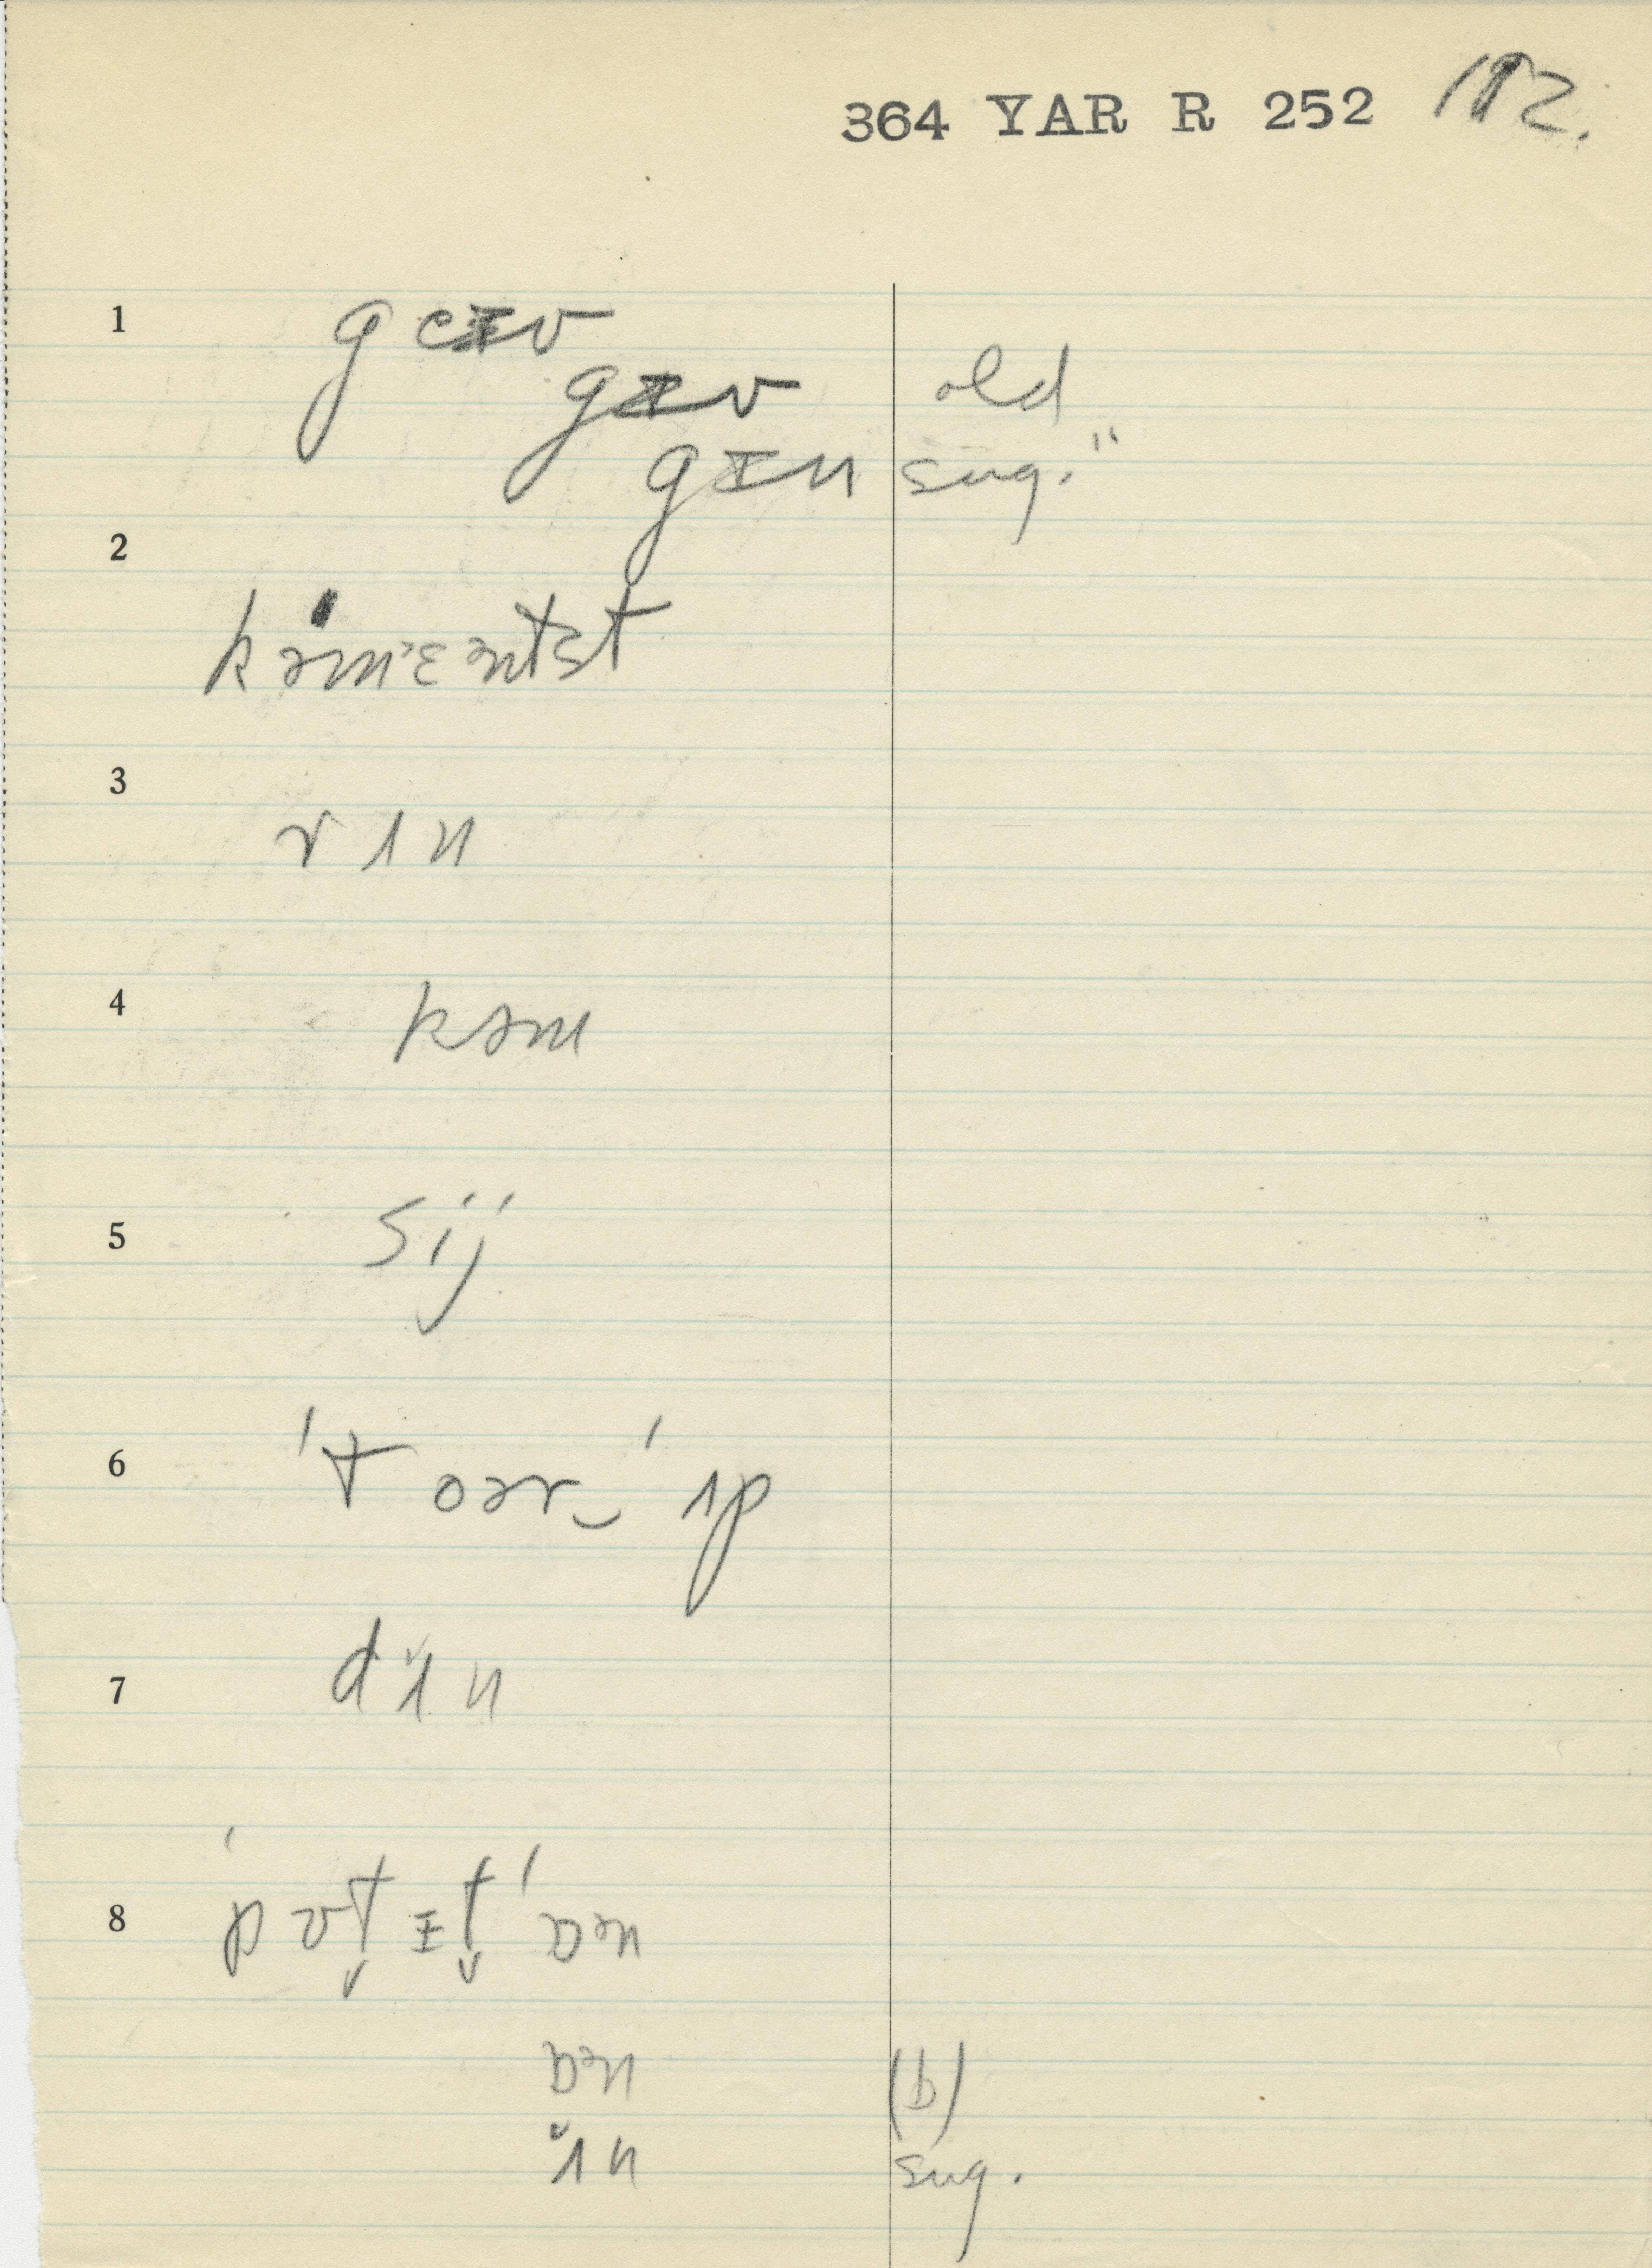 364 YAR R 252 182.
1
gɪv old
gɪn sug."
2
kəmˈɛntst
3
rɪn
4
kəm
5
sij
6
ˈtoər‿ˈɪp
7
dɪ̆n
8
ˈpʊt̬ɪt̬ˈɒən
ɒən (b)
ɪ̆n sug.